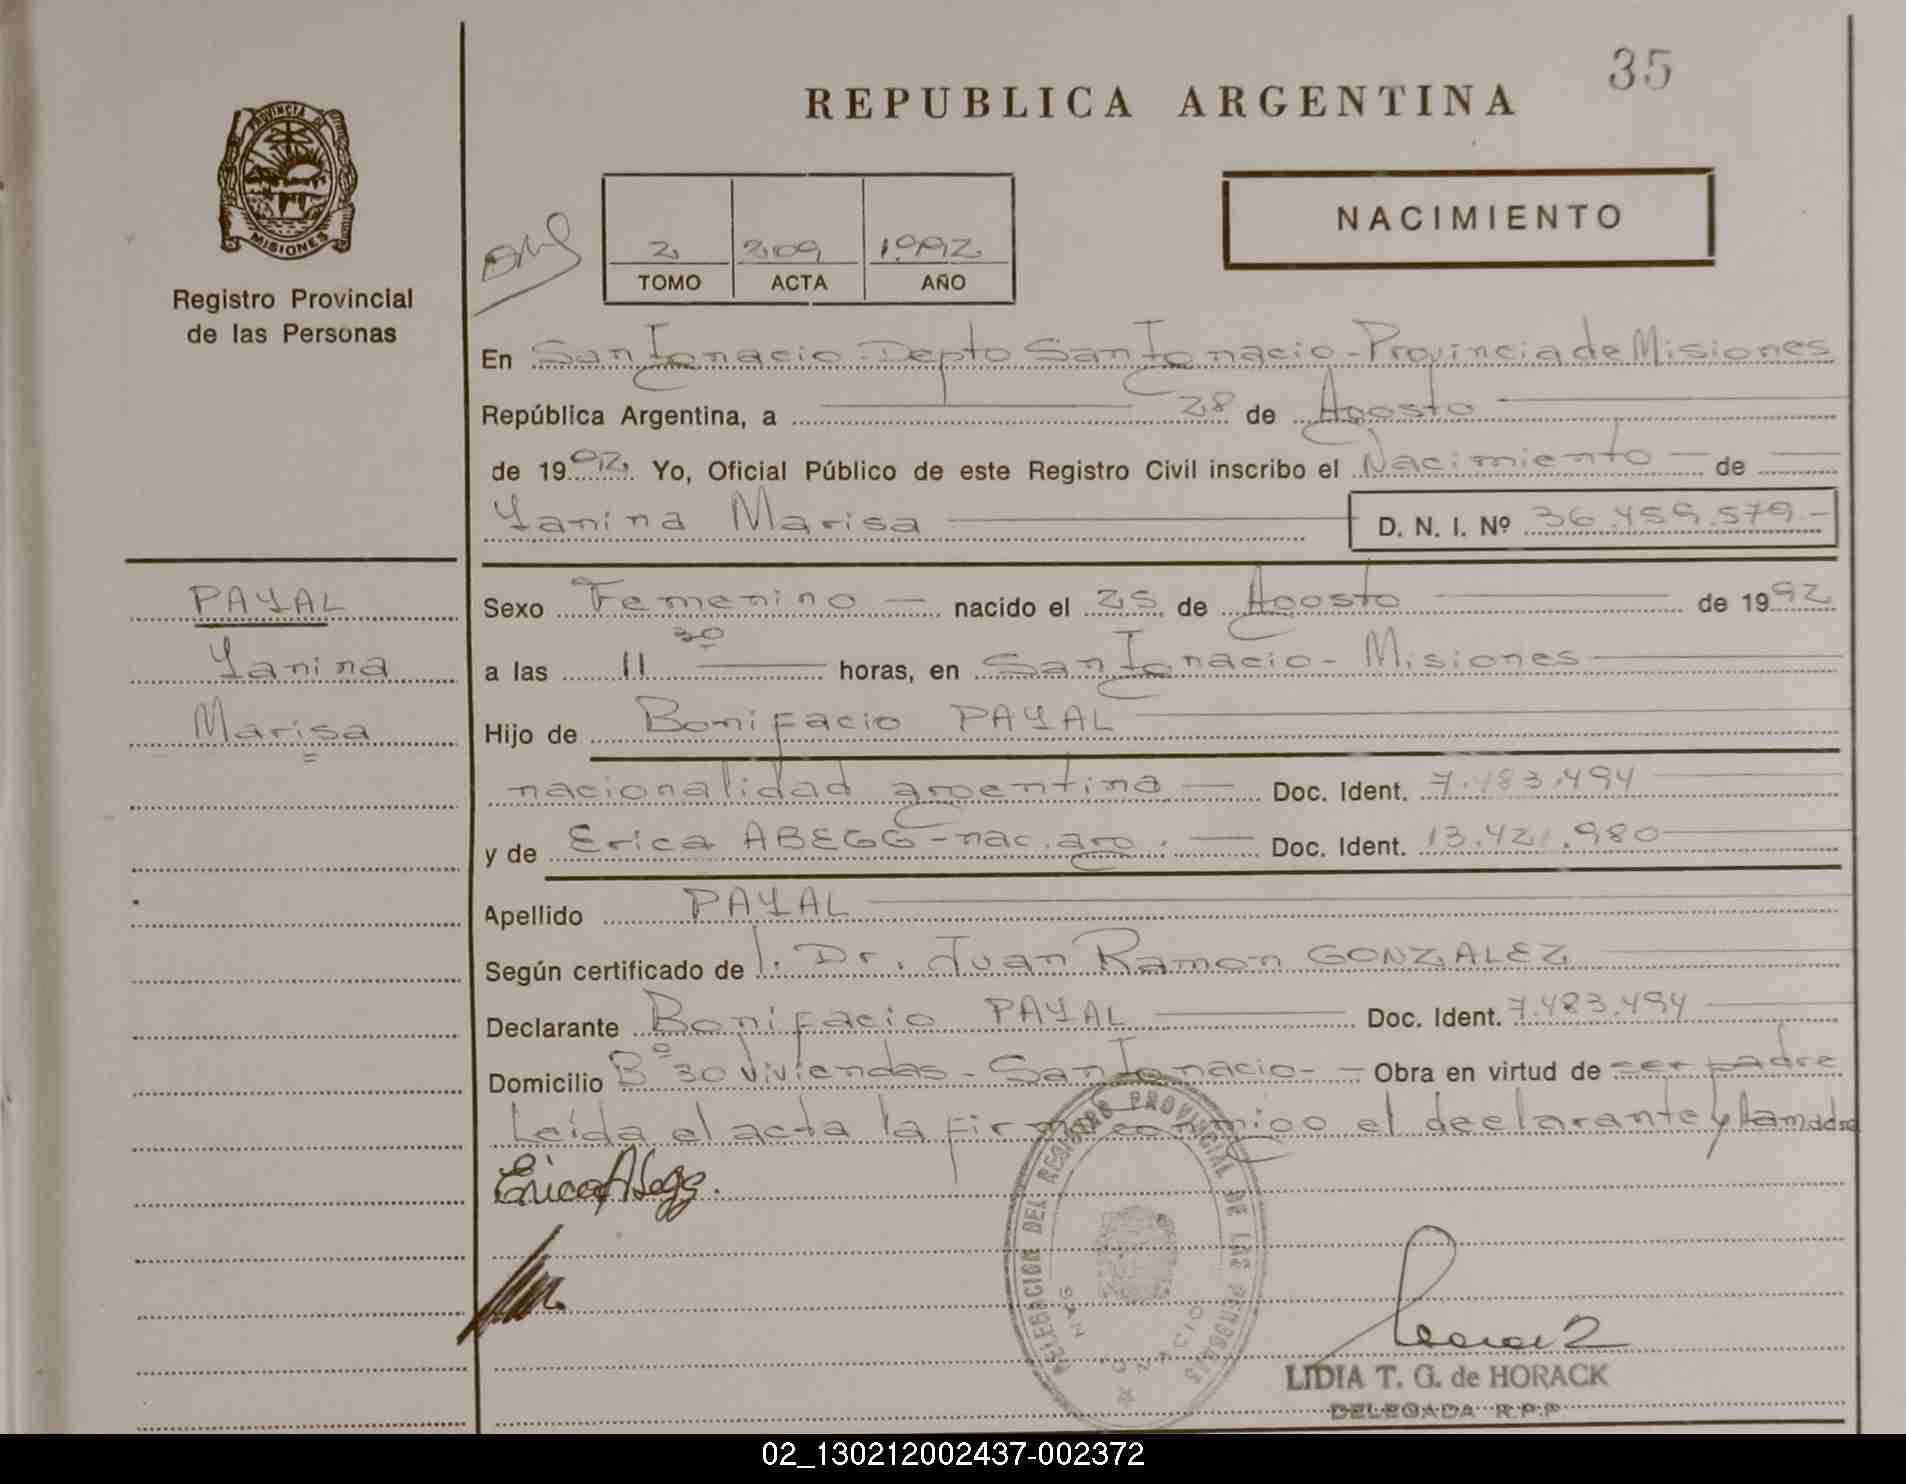 35
REPUBLICA ARGENTINA
PROVINCIA DE
MISIONES
Registro Provincial
de las Personas
NACIMIENTO
2 209 1992
TOMO ACTA AÑO
En San Ignacio - Depto San Ignacio - Provincia de Misiones
República Argentina, a 28 de Agosto
de 1992 Yo, Oficial Público de este Registro Civil inscribo el Nacimiento de
Yanina Marisa D. N. I. Nº 36.459.579.-
PAYAL
Yanina
Marisa
Sexo Femenino nacido el 25 de Agosto de 1992
a las 11 30 horas, en San Ignacio - Misiones
Hijo de Bonifacio PAYAL
nacionalidad argentina Doc. Ident. 7.483.494
y de Erica ABEGG - nac. arg. Doc. Ident. 13.421.980
Apellido PAYAL
Según certificado de l. Dr. Juan Ramon GONZALEZ
Declarante Bonifacio PAYAL Doc. Ident. 7.483.494
Domicilio Bº 30 Viviendas - San Ignacio - Obra en virtud de ser padre
Leída el acta la firma conmigo el declarante y la madre
Erica Abegg.
DELEGACION DEL REGISTRO PROVINCIAL DE LAS PERSONAS
SAN IGNACIO
LIDIA T. G. de HORACK
DELEGADA R.P.P.
02_130212002437-002372